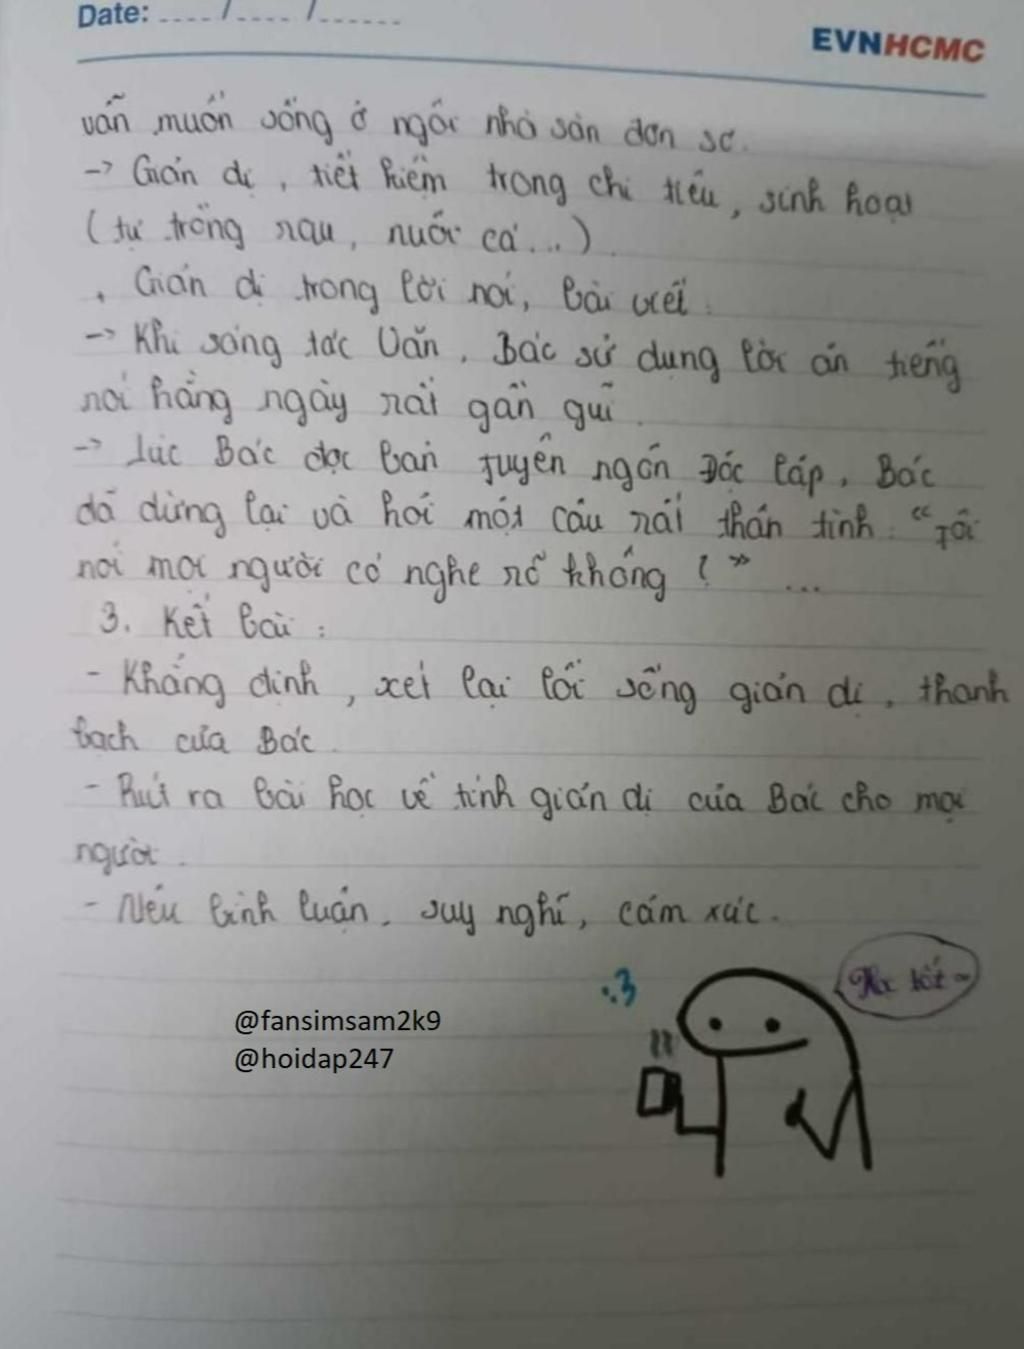 Date: ..../..../......
EVNHCMC
vẫn muốn sống ở ngôi nhà sàn đơn sơ.
-> Giản dị, tiết kiệm trong chi tiêu, sinh hoạt
(tự trồng rau, nuôi cá...).
, Giản dị trong lời nói, bài viết.
-> Khi sáng tác Văn, Bác sử dụng lời ăn tiếng
nói hằng ngày rất gần gũi.
-> Lúc Bác đọc bản Tuyên ngôn Độc lập, Bác
đã dừng lại và hỏi một câu rất thân tình: "Tôi
nói mọi người có nghe rõ không?" ...
3. Kết bài:
- Khẳng định, xét lại lối sống giản dị, thanh
bạch của Bác.
- Rút ra bài học về tính giản dị của Bác cho mọi
người.
- Nêu bình luận, suy nghĩ, cảm xúc.
:3
tốt ~
@fansimsam2k9
@hoidap247